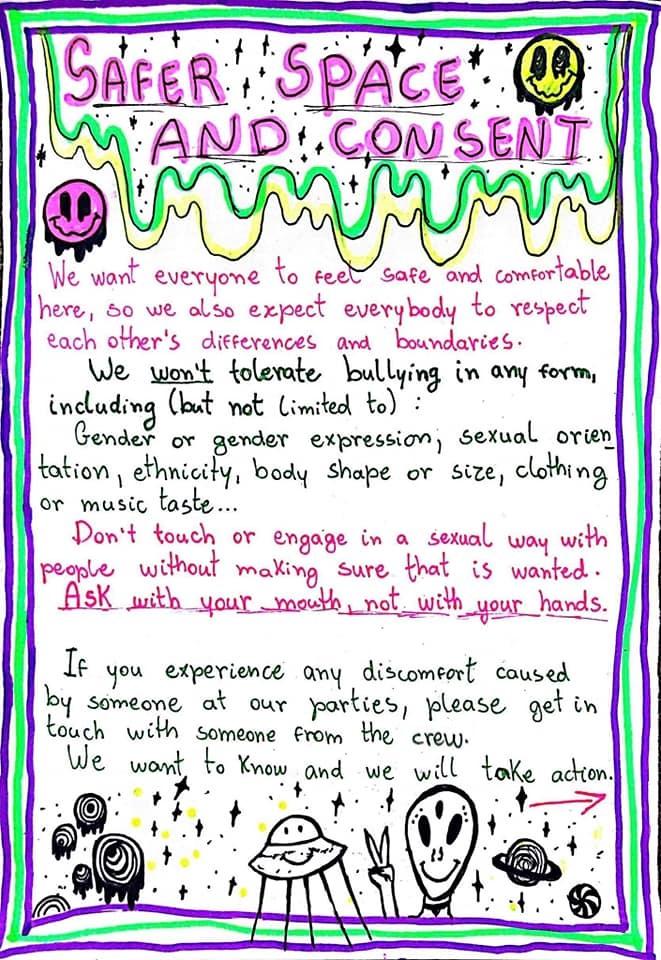 SAFER SPACE
AND CONSENT
We want everyone to feel safe and comfortable
here, so we also expect everybody to respect
each other's differences and boundaries.
We won't tolerate bullying in any form,
including (but not limited to) :
Gender or gender expression, sexual orien_
tation, ethnicity, body shape or size, clothing
or music taste...
Don't touch or engage in a sexual way with
people without making sure that is wanted.
Ask with your mouth, not with your hands.
If you experience any discomfort caused
by someone at our parties, please get in
touch with someone from the crew.
We want to know and we will take action.